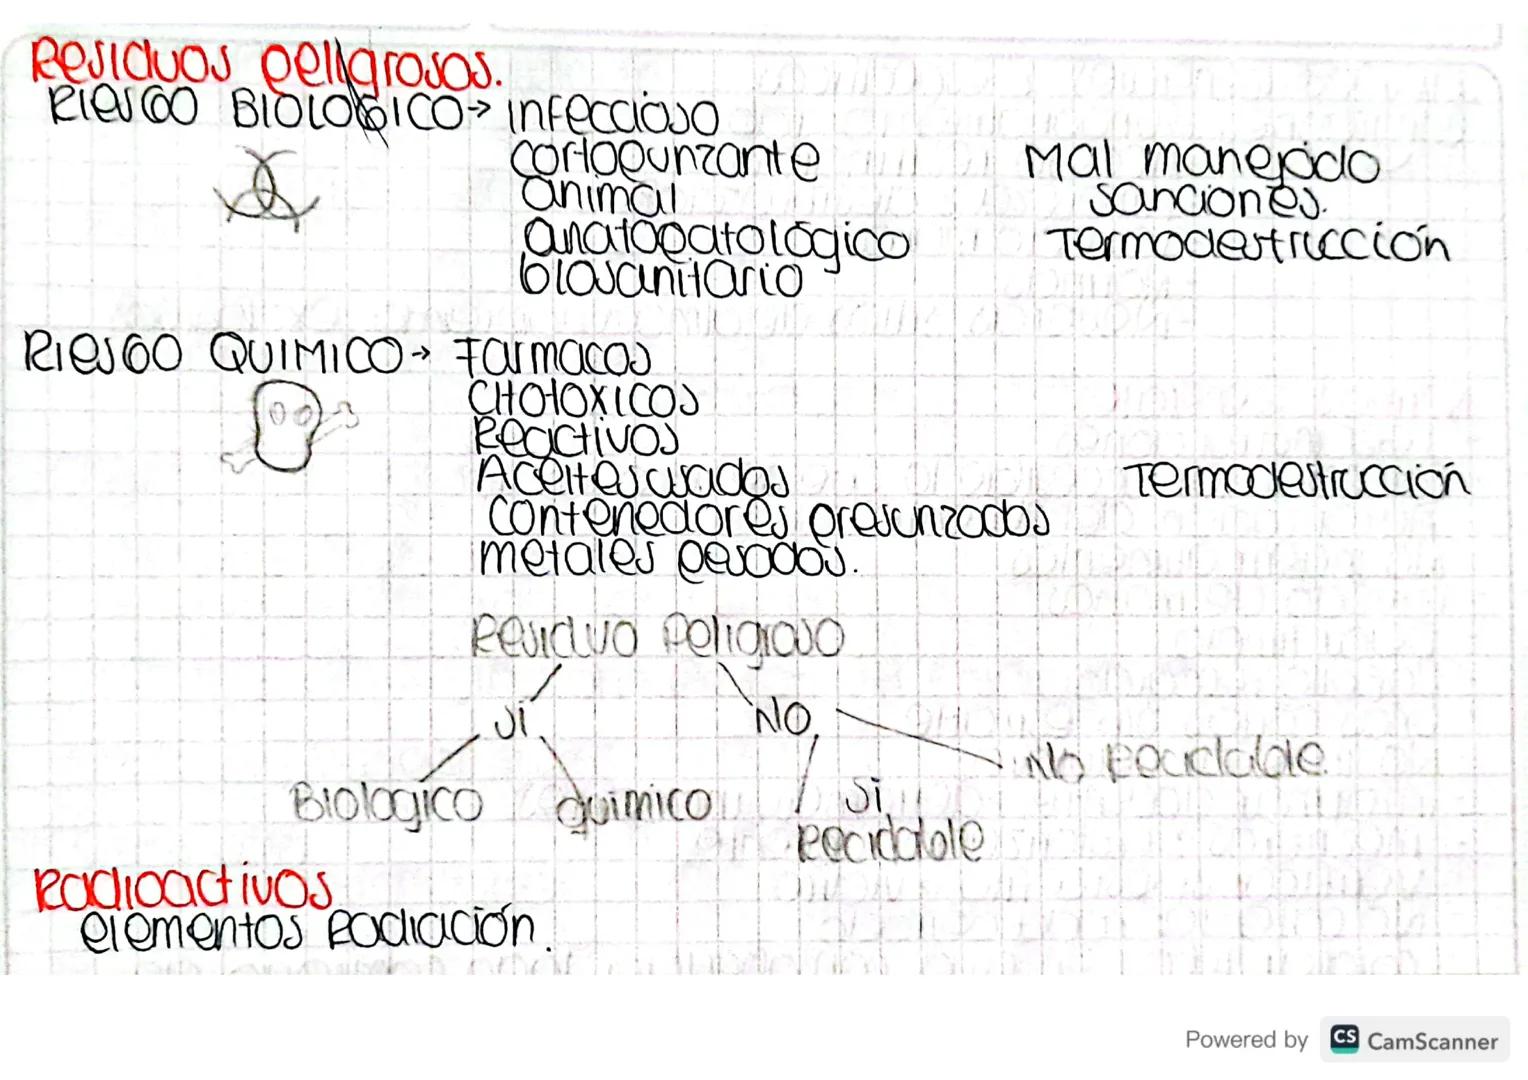 Residuos peligrosos.
RIESGO BIOLOGICO→ infeccioso
cortopunzante
animal
anatopatológico
biosanitario
Mal manejado
sanciones.
Termodestrucción
RIESGO QUIMICO→ Farmacos
Citotoxicos
Reactivos
Aceites usados
contenedores presunzados
metales pesados.
Termodestrucción
Residuo Peligroso
Si
NO
Biologico
quimico
Si
Reciclable
No Reciclable.
Radioactivos
elementos Radiación.
Powered by CS CamScanner